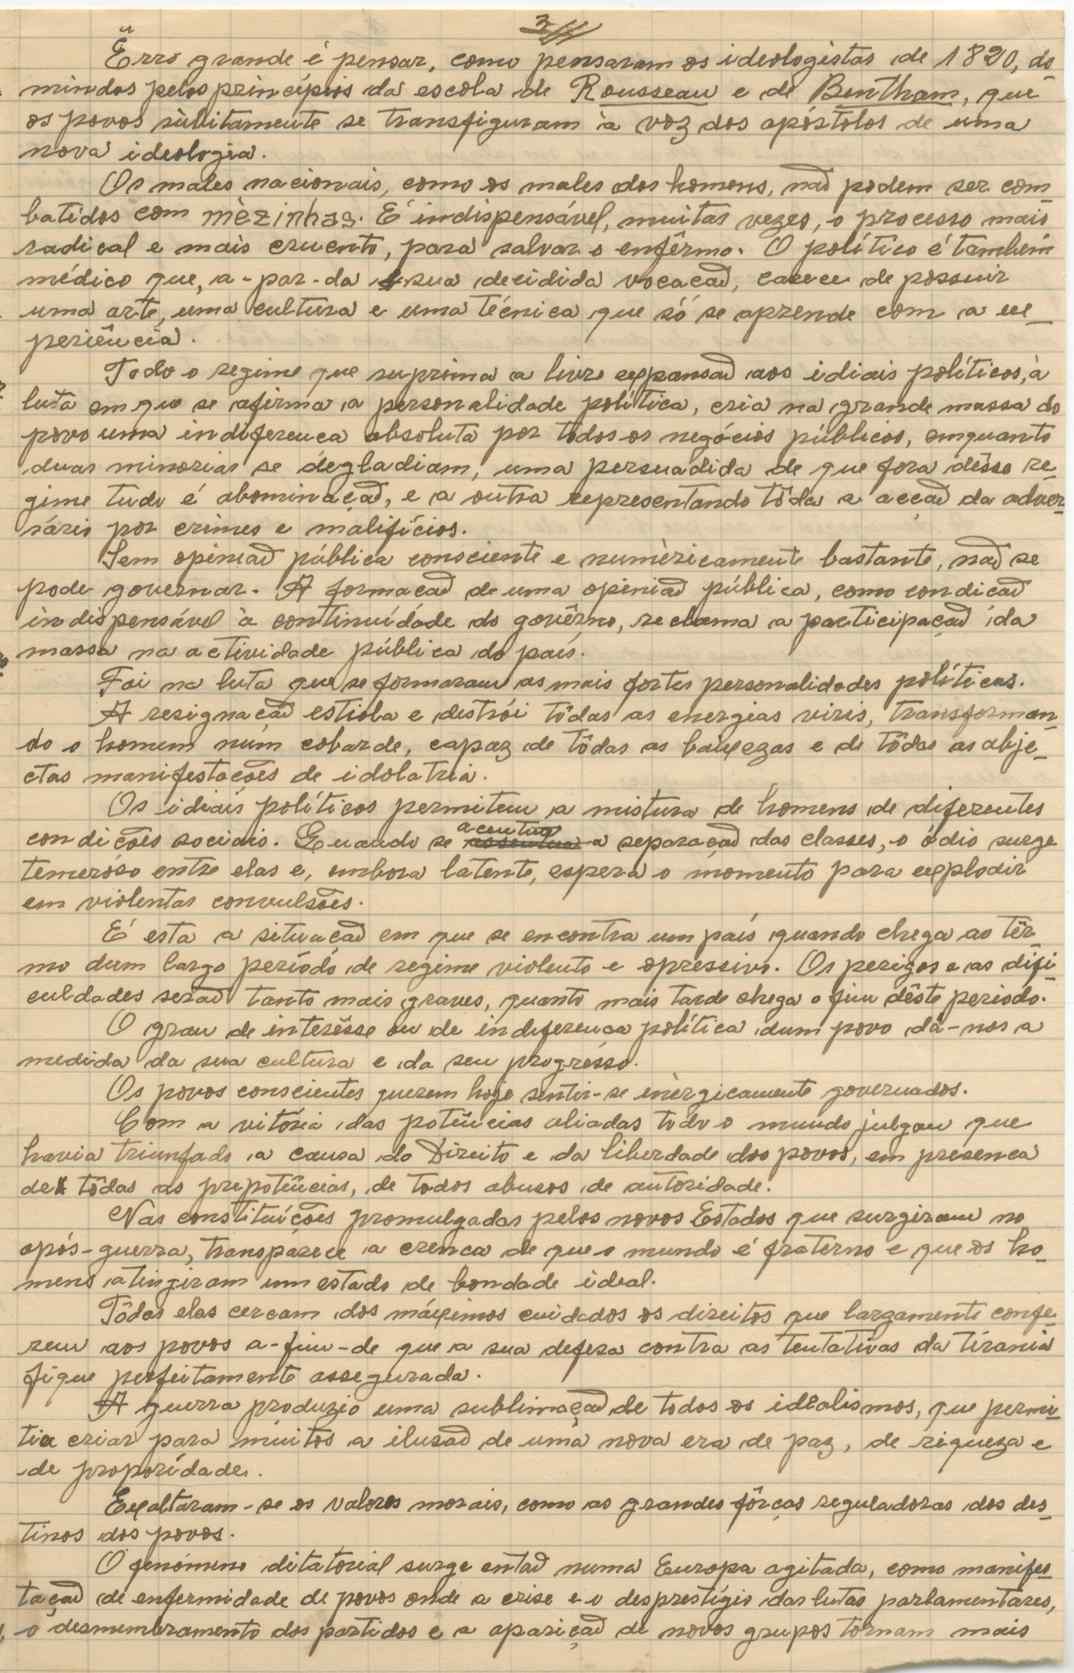 3
Êrro grande é pensar, como pensaram os ideologistas de 1820, do-
minados pelos princípios da escola de Rousseau e de Bentham, que
os povos sùbitamente se transfiguram à voz dos apóstolos de uma
nova ideologia.
Os males nacionais, como os males dos homens, não podem ser com-
batidos com mèzinhas. É indispensável, muitas vezes, o processo mais
radical e mais cruento, para salvar o enfêrmo. O político é também
médico que, a-par-da sua decidida vocação, carece de possuir
uma arte, uma cultura e uma técnica que só se aprende com a ex-
periência.
Todo o regime que suprima a livre expansão aos idiais políticos, à
luta em que se afirma a personalidade política, cria na grande massa do
povo uma indiferença absoluta por todos os negócios públicos, emquanto
duas minorias se degladiam, uma persuadida de que fora dêsse re-
gime tudo é abominação, e a outra representando tôda a acção da adver-
sário por crimes e malifícios.
Sem opinião pública consciente e numèricamente bastante, não se
pode governar. A formação de uma opinião pública, como condição
indispensável à continuídade do govêrno, reclama a participação da
massa na actividade pública do país.
Foi na luta que se formaram as mais fortes personalidades políticas.
A resignação estiola e destrói tôdas as energias viris, transforman-
do o homem num cobarde, capaz de tôdas as baixezas e de tôdas as abje-
ctas manifestações de idolatria.
Os idiais políticos permitem a mistura de homens de diferentes
condições sociais. Quando se acentua a separação das classes, o ódio surge
temeróso entre elas e, embora latente, espera o momento para explodir
em violentas convulsões.
É esta a situação em que se encontra um país quando chega ao têr-
mo dum largo período de regime violento e opressivo. Os perigos e as difi-
culdades serão tanto mais graves, quanto mais tarde chega o fim dêste periodo.
O grau de interêsse ou de indiferença política dum povo dá-nos a
medida da sua cultura e do seu progrésso.
Os povos conscientes querem hoje sentir-se enèrgicamente governados.
Com a vitória das potências aliadas todo o mundo julgou que
havia triunfado a causa do Direito e da liberdade dos povos, em presença
de tôdas as prepotências, de todos abusos de autoridade.
Nas constituíções promulgadas pelos novos Estados que surgiram no
após-guerra, transparece a crença de que o mundo é fraterno e que os ho-
mens atingiram um estado de bondade ideal.
Tôdas elas cercam dos máximos cuidados os direitos que largamente confe-
rem aos povos a-fim-de que a sua defesa contra as tentativas da tirania
fique perfeitamente assegurada.
A guerra produzio uma sublimação de todos os idealismos, que permi-
tia criar para muitos a ilusão de uma nova era de paz, de riqueza e
de proporidade.
Exaltaram-se os valores morais, como as grandes fôrças reguladoras dos des-
tinos dos povos.
O fenómeno ditatorial surge então numa Europa agitada, como manifes-
tação de enfermidade de povos onde a crise e o desprestígio das lutas parlamentares,
o desmembramento dos partidos e a aparição de novos grupos tornam mais